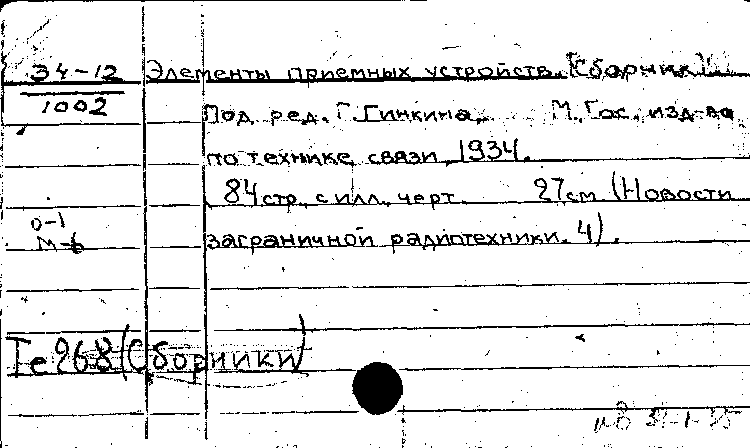 34-12
1002
Элементы приемных устройств. [Сборник]
Под ред. Г. Гинкина. М. Гос. изд-во
по технике связи, 1934.
84 стр. с илл., черт. 27 см (Новости
заграничной радиотехники. 4).
0-1
М-6
Те268 (Сборники)